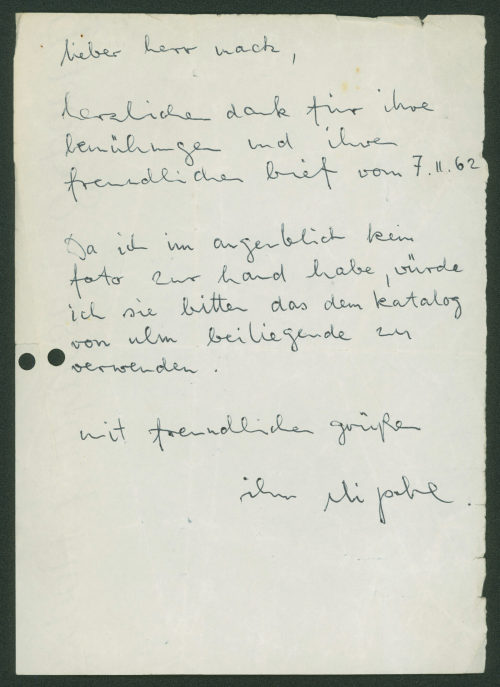 lieber herr mack,
herzlichen dank für ihre
bemühungen und ihren
freundlichen brief vom 7.11.62
Da ich im augenblich kein
foto zur hand habe, würde
ich sie bitten das dem katalog
von ulm beiliegende zu
verwenden.
mit freundlichen grüßen
ihr